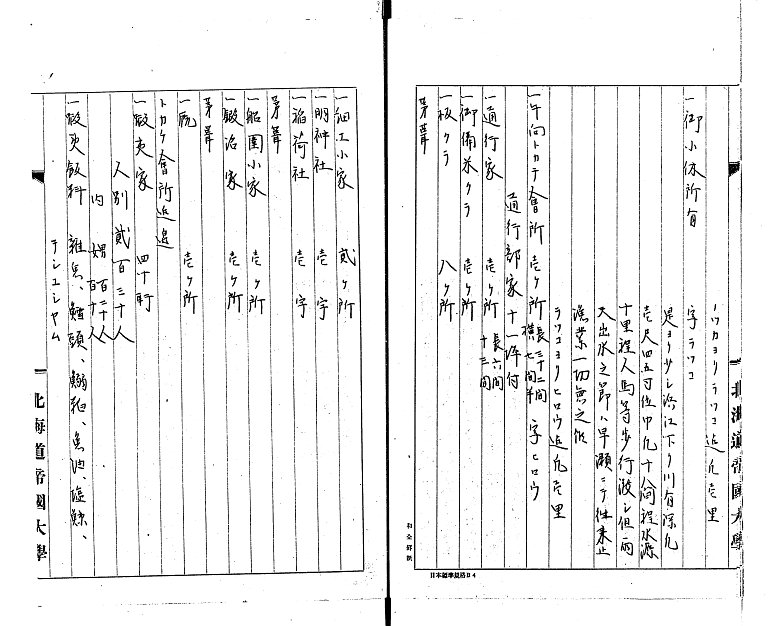 ノツカヨリラツコ迄凡壱里
一御小休所有
字ラツコ
是ヨリ少シ沼江下り川有深凡
壱尺四五寸位巾凡十八間程水源
十里程人馬等歩行渡シ但雨
大出水之節ハ早瀬ニテ往来止
漁業一切無之候
ラツコヨリヒロウ迄凡壱里
一午向トカチ會所 壱ケ所 長三十二間 横七間半 字ヒロウ
通行部家 十一坪付
一通行家 壱ケ所 長六間 十三間
一御備米クラ 壱ケ所
一板クラ 八ケ所
茅葺
北海道帝國大學
日本標準規格B4
一細工小家 貳ケ所
一明神社 壱宇
一稲荷社 壱宇
茅葺
一船圍小家 壱ケ所
一鍛冶家 壱ケ所
茅葺
一厩 壱ケ所
トカチ會所近邊
一蝦夷家 四十軒
人別貳百三十人
内 男百二十人 女百十人
一蝦夷飯料 雑魚、鱈頭、鰯粕、魚油、塩鯨、
テシユシヤム
北海道帝國大學